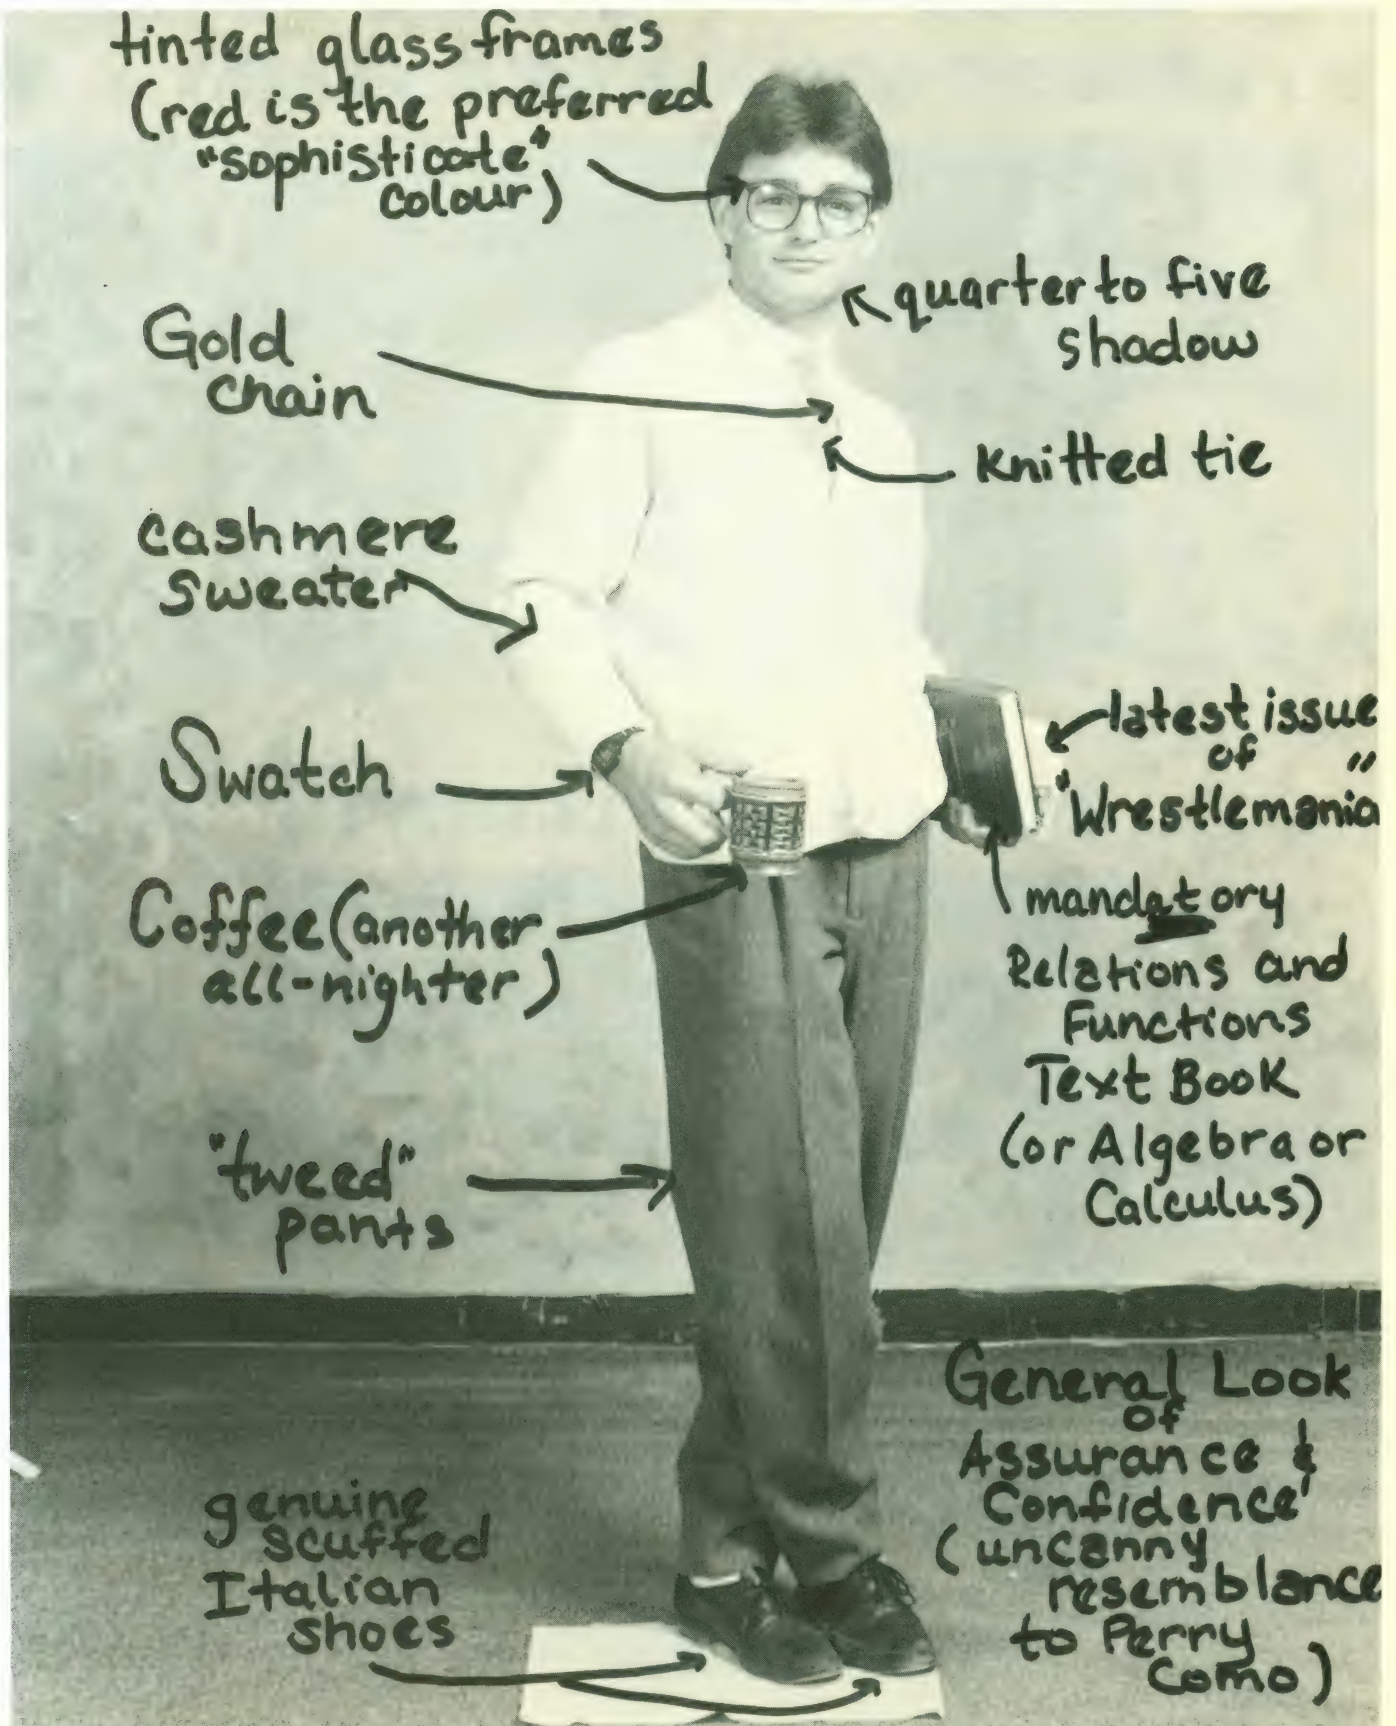 tinted glass frames
(red is the preferred
"sophisticate"
colour)
quarter to five
shadow
Gold
chain
knitted tie
cashmere
sweater
latest issue
of
"Wrestlemania"
Swatch
mandatory
Relations and
Functions
Text Book
(or Algebra or
Calculus)
Coffee (another
all-nighter)
"tweed"
pants
General Look
of
Assurance &
Confidence
(uncanny
resemblance
to Perry
Como)
genuine
scuffed
Italian
shoes